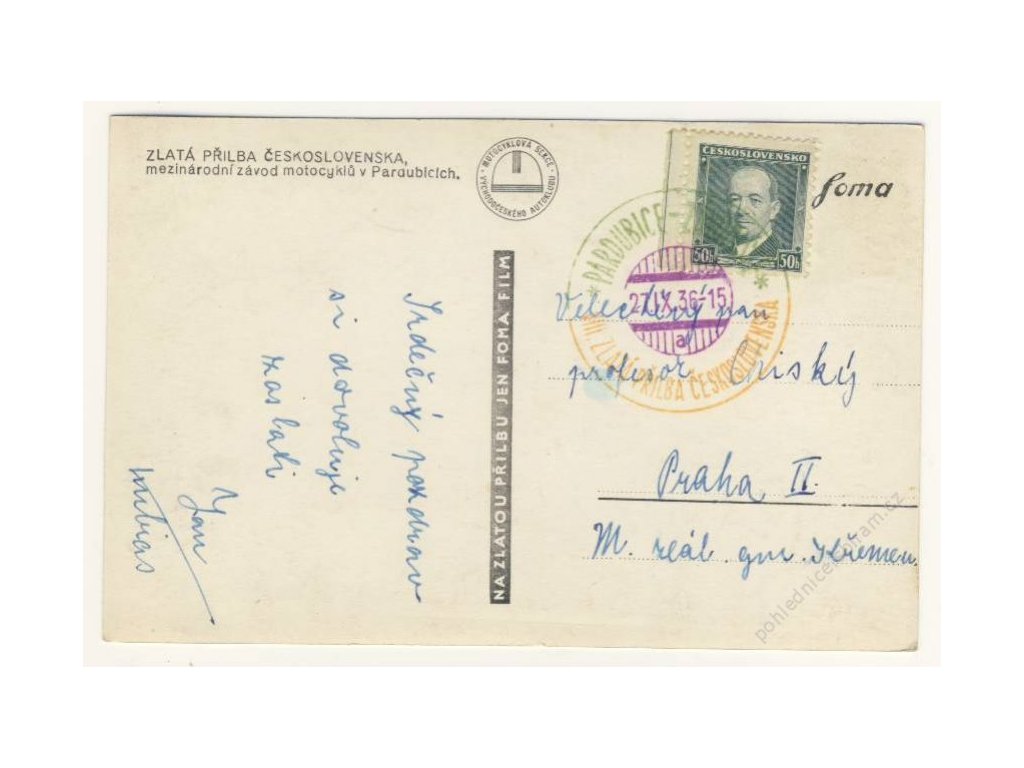 ZLATÁ PŘILBA ČESKOSLOVENSKA,
mezinárodní závod motocyklů v Pardubicích.
MOTOCYKLOVÁ SEKCE
VÝCHODOČESKÉHO AUTOKLUBU
ČESKOSLOVENSKO
50h 50h
foma
* PARDUBICE
*
27.IX.36-15
a
III. ZLATÁ PŘILBA ČESKOSLOVENSKA
NA ZLATOU PŘILBU JEN FOMA FILM
Srdečný pozdrav
si dovoluje
zaslati
Jan
Velectěný pan
profesor
Praha II.
M. reál. gym. Křemen
pohlednice-sbham.cz